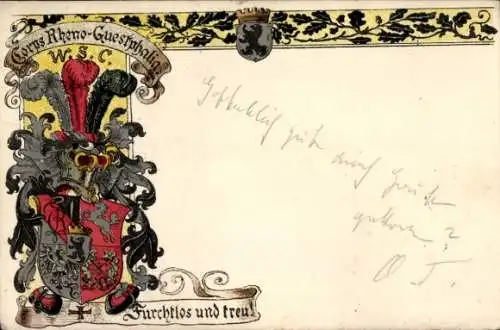 Corps Rheno-Guestphalia
W. S. C.
Hoffentlich gut durch
gekommen?
O. T.
Furchtlos und treu!